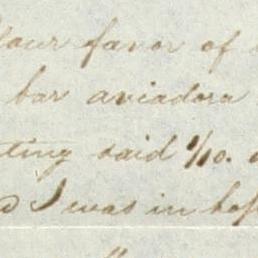 your favor of
bar aviadora
ting said 1/10.
I was in